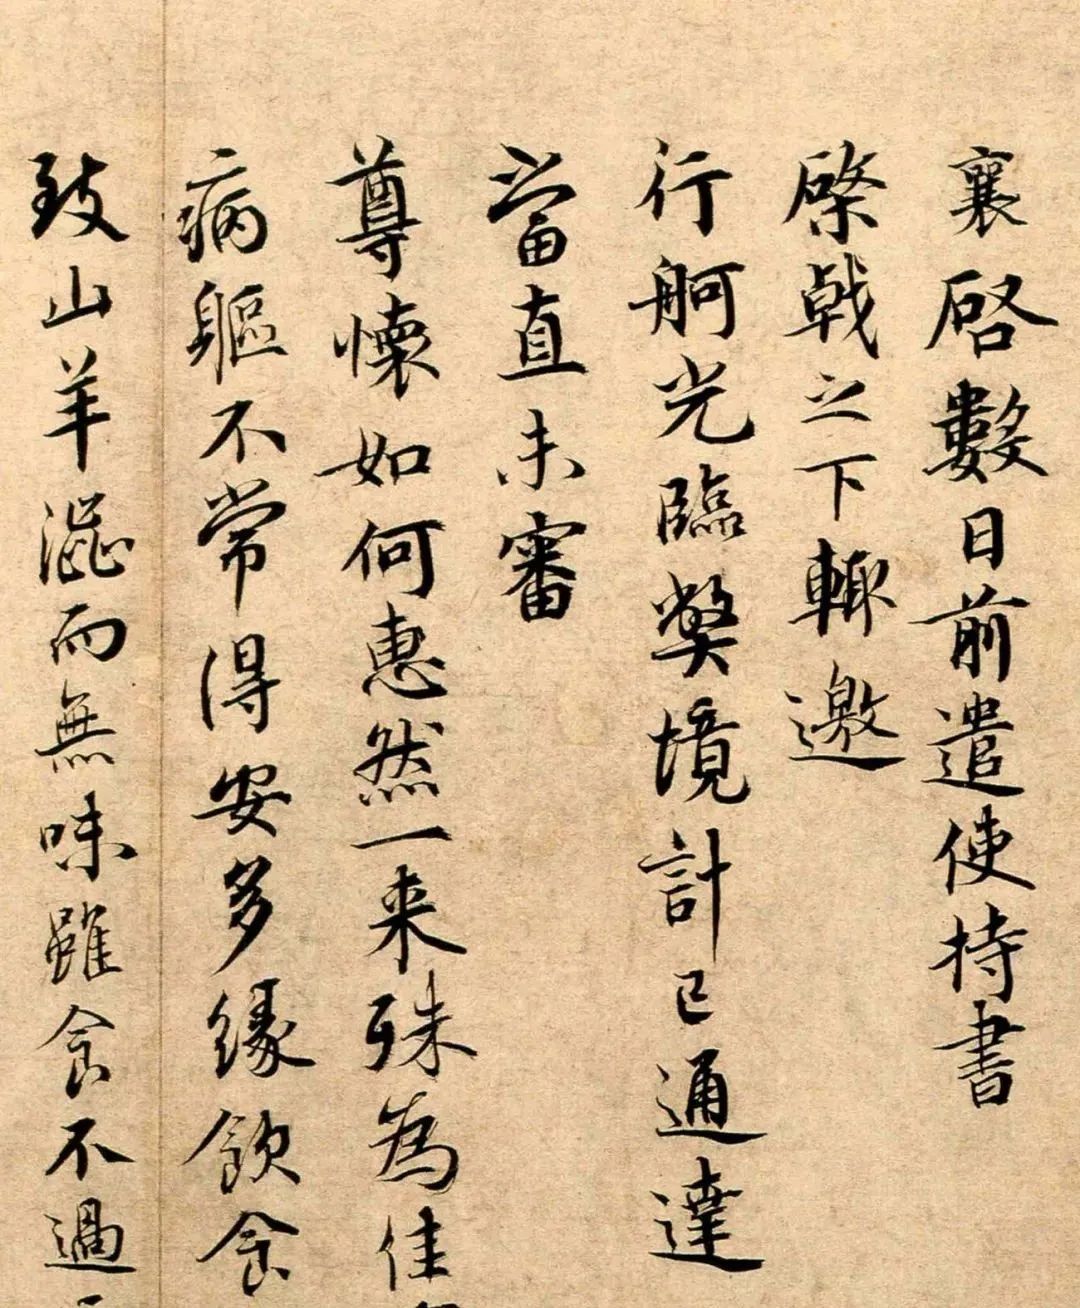 襄啓數日前遣使持書
棨戟之下輙邀
行舸光臨獘境計已通達
當直未審
尊懷如何惠然一来殊為佳
病軀不常得安多緣飲食
致山羊澀而無味雖食不過